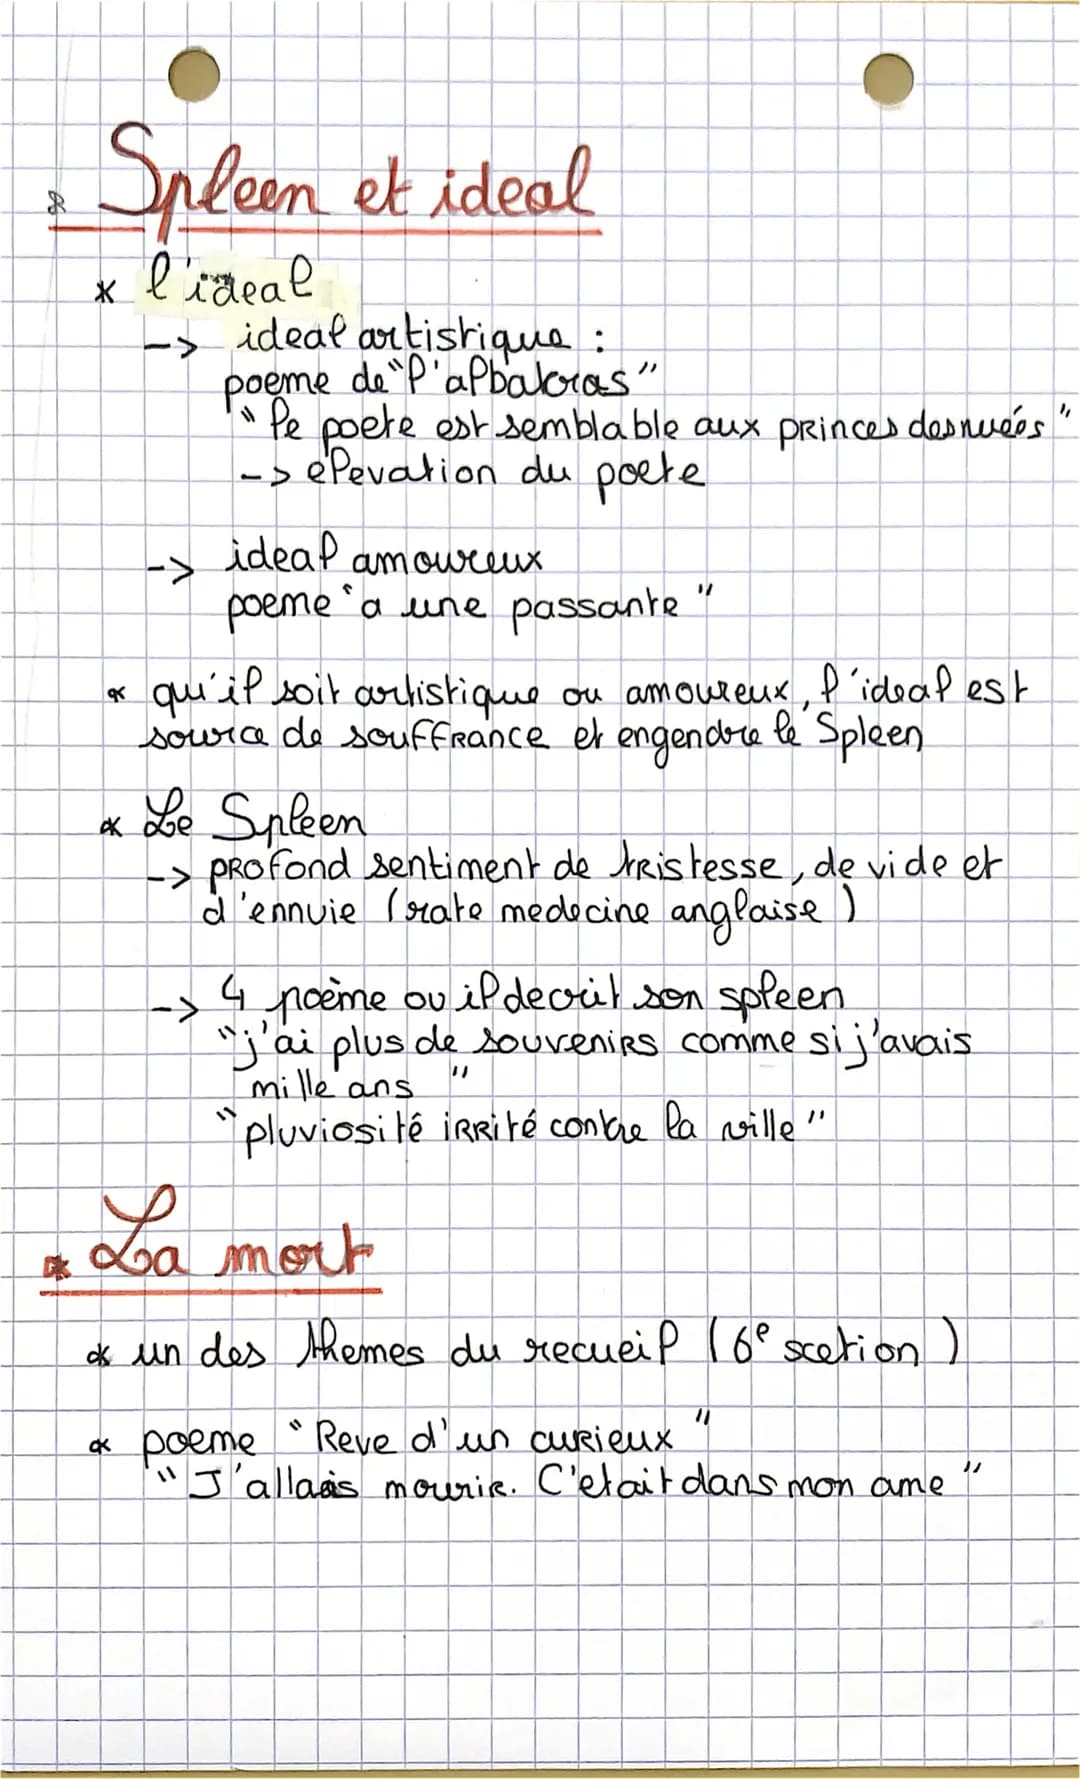 * Spleen et ideal
* l'ideal
-> ideal artistique :
poeme de "l'albatros"
"le poete est semblable aux princes des nueés"
-> elevation du poete
-> ideal amoureux
poeme "a une passante"
* qu'il soit artistique ou amoureux, l'ideal est
source de souffrance et engendre le Spleen
* Le Spleen
-> profond sentiment de tristesse, de vide et
d'ennuie (rate medecine anglaise)
-> 4 poème ou il decrit son spleen
"j'ai plus de souvenirs comme si j'avais
mille ans "
"pluviosité irrité contre la ville"
* La mort
* un des themes du recueil (6e scetion)
* poeme "Reve d'un curieux "
"J'allais mourir. C'etait dans mon ame "